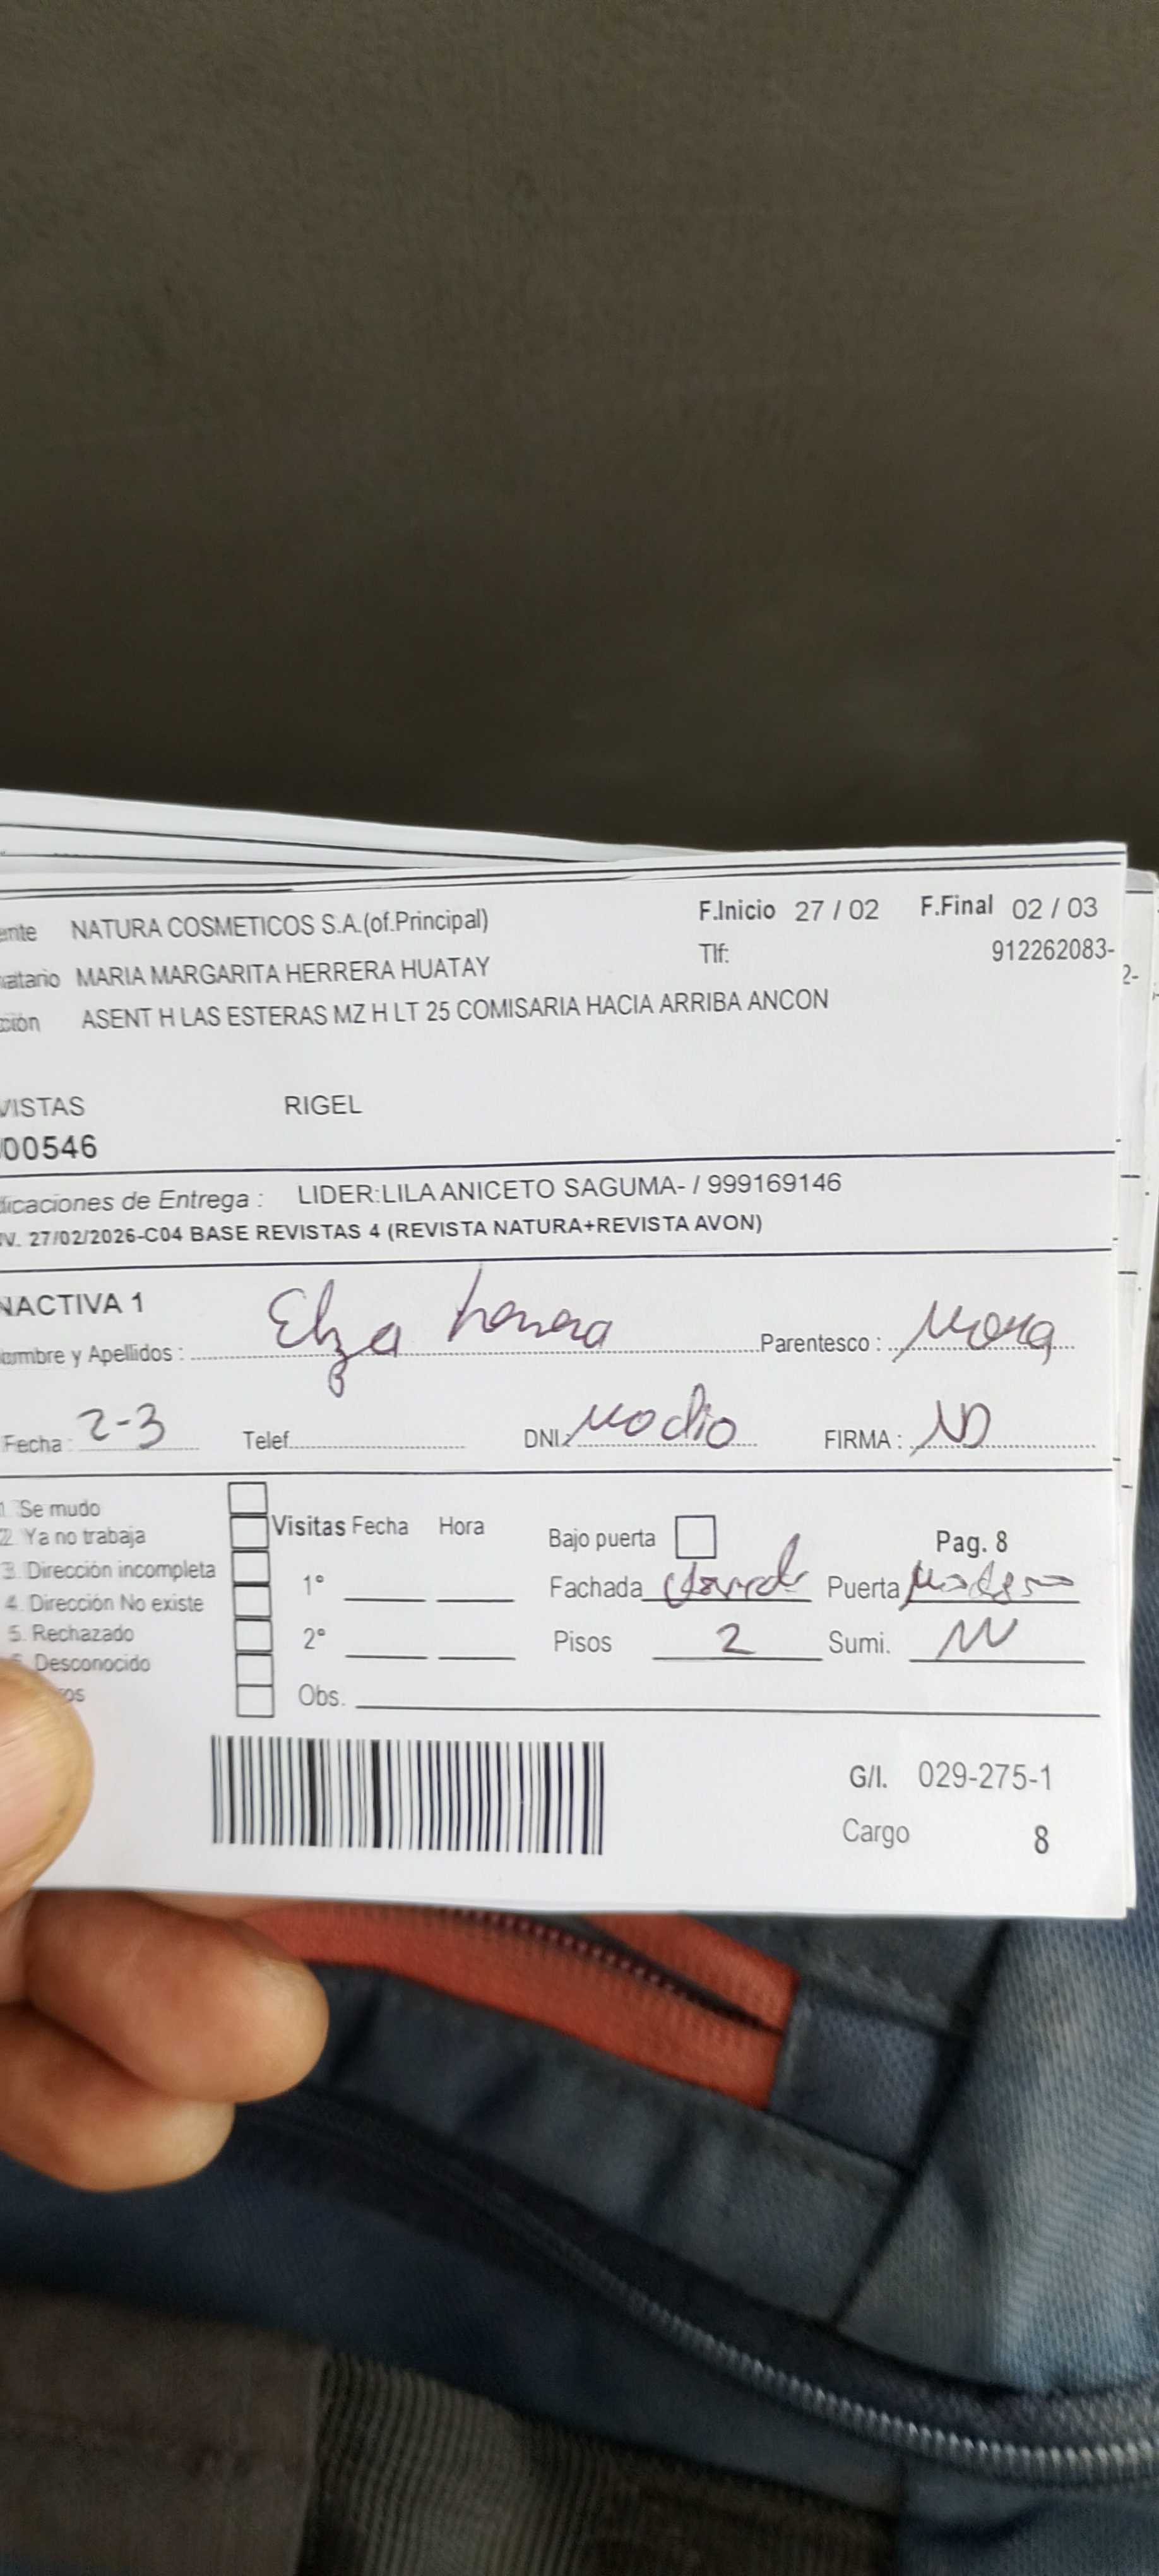 ente NATURA COSMETICOS S.A.(of.Principal) F.Inicio 27 / 02 F.Final 02 / 03
Tlf: 912262083-
natario MARIA MARGARITA HERRERA HUATAY
cción ASENT H LAS ESTERAS MZ H LT 25 COMISARIA HACIA ARRIBA ANCON
VISTAS RIGEL
00546
dicaciones de Entrega : LIDER:LILA ANICETO SAGUMA- / 999169146
V. 27/02/2026-C04 BASE REVISTAS 4 (REVISTA NATURA+REVISTA AVON)
NACTIVA 1
ombre y Apellidos : Elza herrera Parentesco :
Fecha : 2-3 Telef. DNI.: No dio FIRMA : ND
1. Se mudo
2. Ya no trabaja
3. Dirección incompleta
4. Dirección No existe
5. Rechazado
Desconocido
ros
Visitas Fecha Hora
1°
2°
Obs.
Bajo puerta Pag. 8
Fachada Puerta Madera
Pisos 2 Sumi.
G/I. 029-275-1
Cargo 8